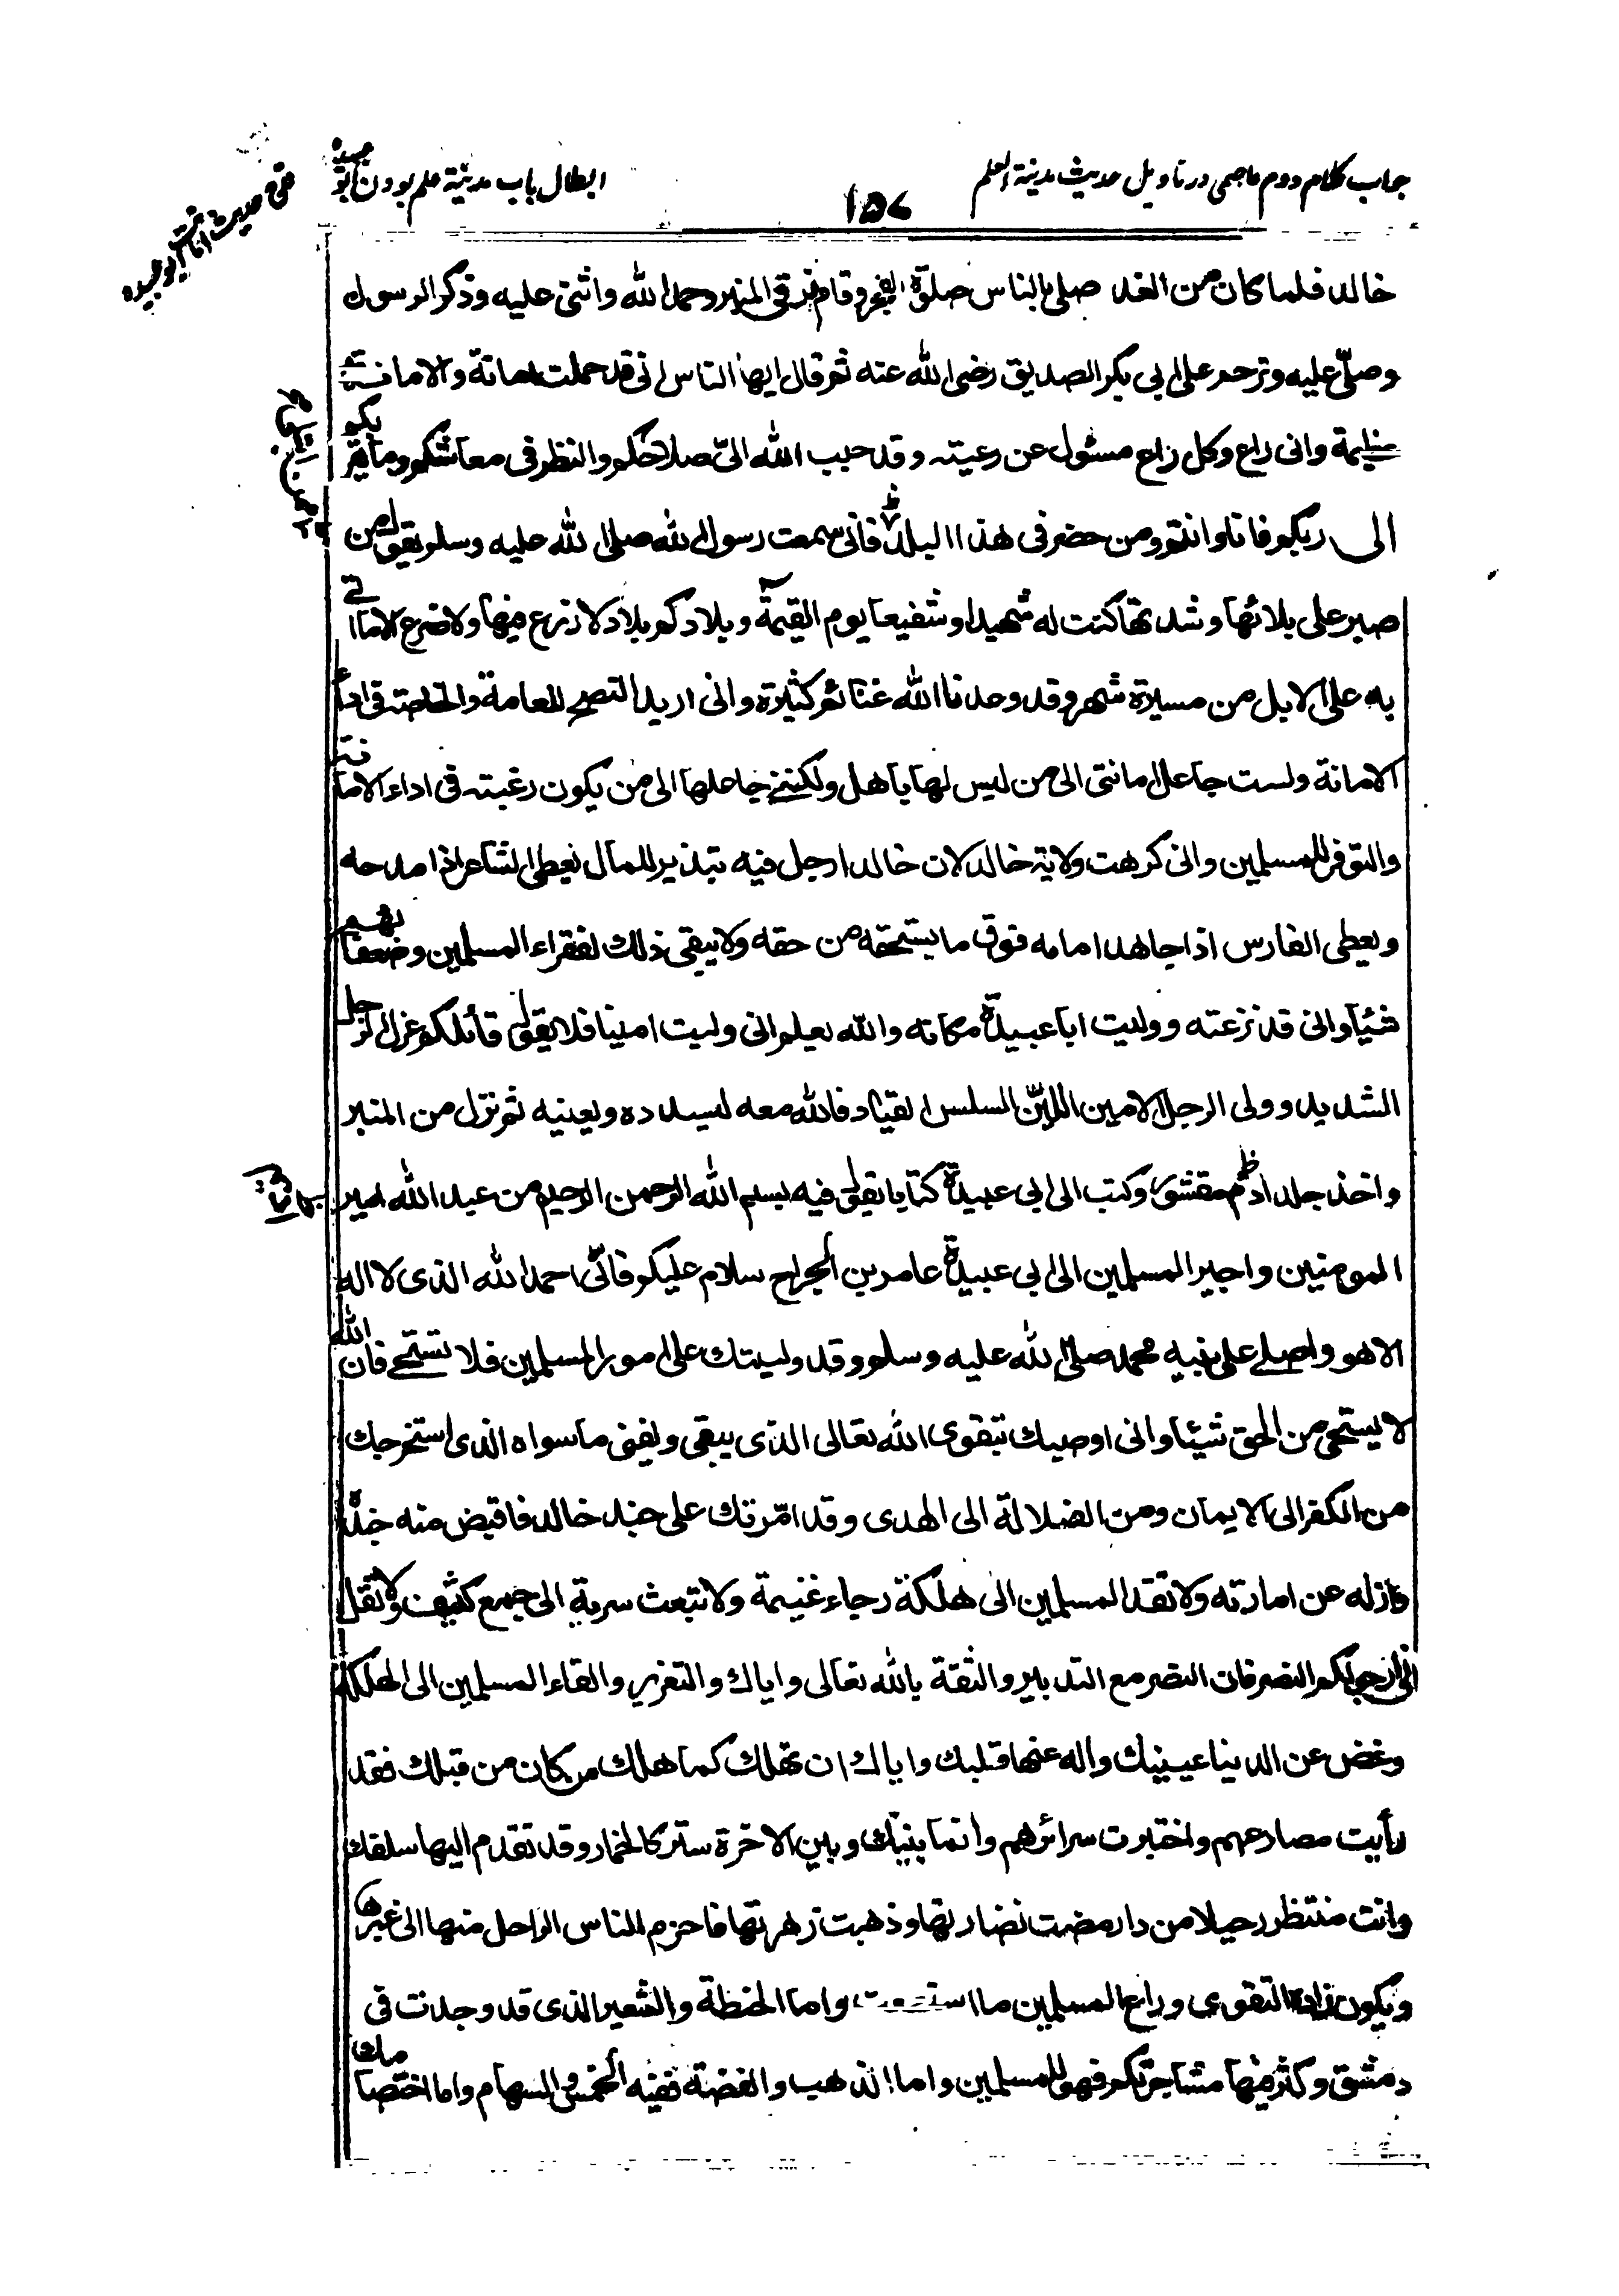 جواب کلام دوم عاصمی در تاویل حدیث مدینة العلم
١٥٤
ابطال باب مدینة علم بودن ابو عبیده
حدیث
ابو عبیده
خالد فلما كان من الغد صلى بالناس صلوة الفجر وقام فرقى المنبر وحمد الله واثنى عليه وذكر الرسول
وصلّى عليه وترحم على ابى بكر الصديق رضى الله عنه ثم قال ايها الناس انى قد حملت امانة والامانة
عظيمة وانى راع وكل راع مسئول عن رعيته وقد حبب الله الىّ صلاحكم والنظر فى معاشكم وما يقربكم
الى ربكم فانا وانتم ومن حضر فى هذا البلد فانى سمعت رسول الله صلى الله عليه وسلم يقول من
صبر على بلائها وشدتها كنت له شهيدا وشفيعا يوم القيمة وبلادكم بلاد لا زرع فيها ولا ضرع الا ما اتى
به على الابل من مسيرة شهر وقد وعدنا الله غنائم كثيرة وانى اريد النصح للعامة والخاصة فى اداء
الامانة ولست جاعل امانتى الى من ليس لها باهل ولكننى جاعلها الى من يكون رغبته فى اداء الامانة
والتوفر للمسلمين وانى كرهت ولاية خالد لان خالدا رجل فيه تبذير للمال يعطى الشاعر اذا مدحه
ويعطى الفارس اذا جاهد امامه فوق ما يستحقه من حقه ولا يبقى ذلك لفقراء المسلمين وضعفائهم
شيئا وانى قد نزعته ووليت ابا عبيدة مكانه والله يعلم انى وليت امينا فلا يقول قائلكم عزل الرجل
الشديد وولى الرجل الامين اللين السلس القياد فالله معه ليسدده ويعينه ثم نزل من المنبر
واخذ جلد ادم مقشور وكتب الى ابى عبيدة كتابا يقول فيه بسم الله الرحمن الرحيم من عبد الله امير
المومنين واجير المسلمين الى ابى عبيدة عامر بن الجراح سلام عليكم فانّى احمد الله الذى لا اله
الا هو واصلى على نبيه محمد صلى الله عليه وسلم وقد وليتك على امور المسلمين فلا تستحى فان الله
لا يستحى من الحق شيئا وانى اوصيك بتقوى الله تعالى الذى يبقى ويفنى ما سواه الذى استخرجك
من الكفر الى الايمان ومن الضلالة الى الهدى وقد امّرتك على جند خالد فاقبض منه جنده
وازله عن امارته ولا تقد المسلمين الى هلكة رجاء غنيمة ولا تبعث سرية الى جمع كثيف ولا تقل
انى ارجو لكم النصر فان النصر مع التدبير والثقة بالله تعالى واياك والتغرير والقاء المسلمين الى الهلكة
وغض عن الدنيا عينيك واله عنها قلبك واياك ان تهلك كما هلك من كان من قبلك فقد
رأيت مصارعهم واختبرت سرائرهم وانما بينك وبين الاخرة ستر كالخمار وقد تقدم اليها سلفك
وانت منتظر رحيلا من دار مضت نضارتها وذهبت زهرتها فاحزم الناس الراحل منها الى غيرها
ويكون زاده التقوى وراع المسلمين ما استطعت واما الحنطة والشعير الذى قد وجدت فى
دمشق وكثر فيها مشاجرتكم فهو للمسلمين واما الذهب والفضة ففيه الخمس والسهام واما اختصامك